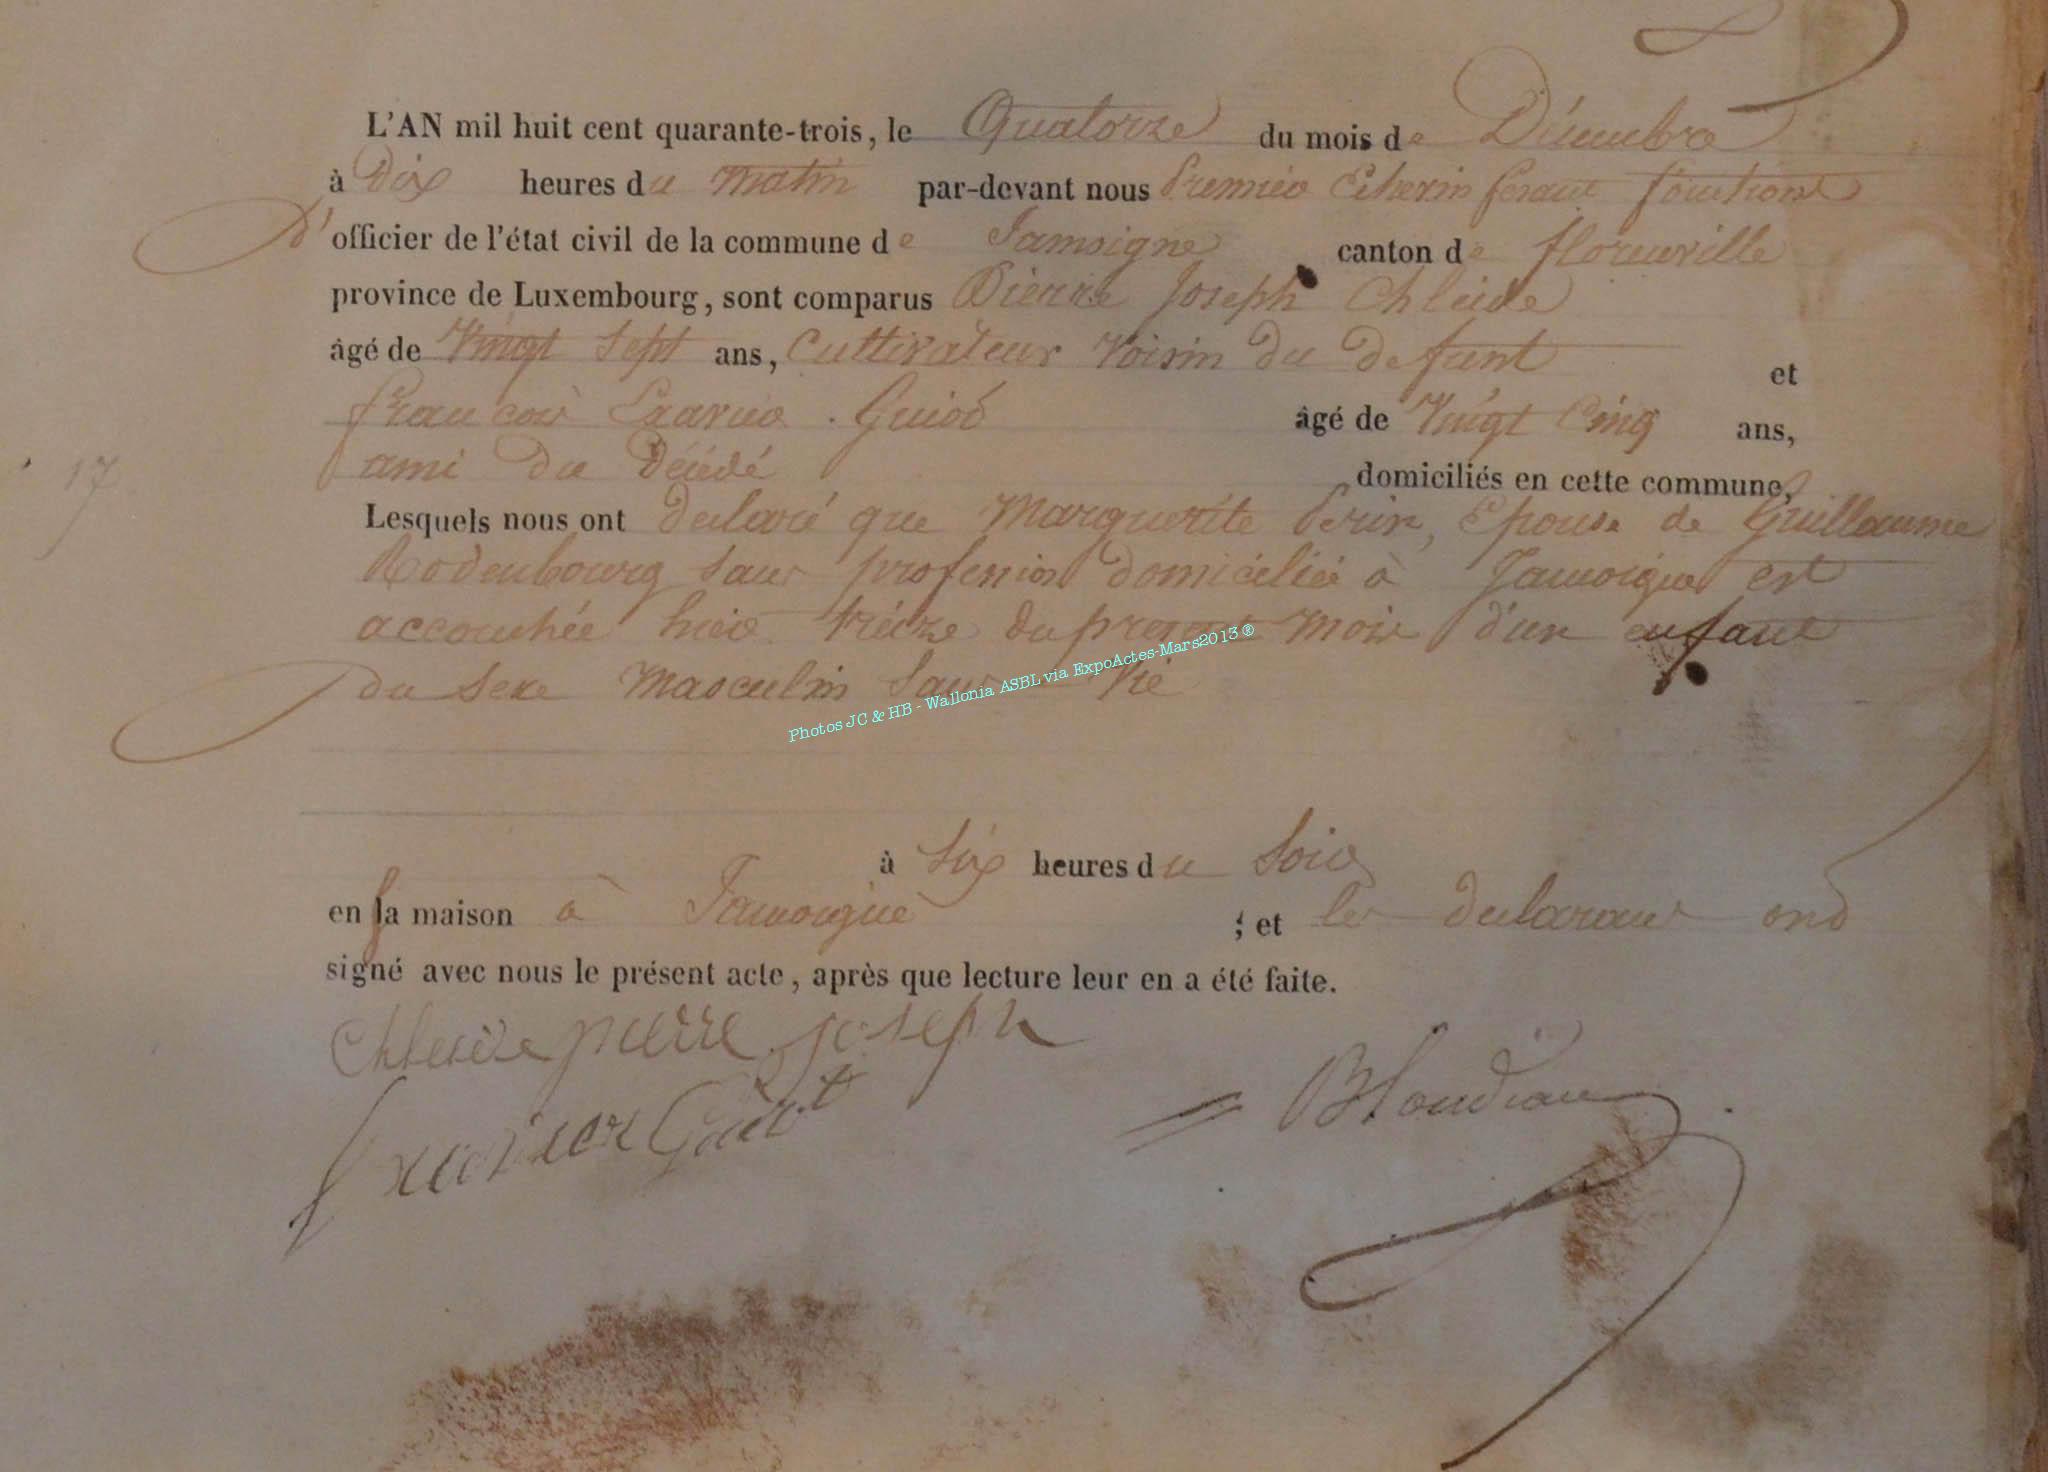 L'AN mil huit cent quarante-trois, le Quatorze du mois de Décembre
à Dix heures du matin par-devant nous Premier Echevin fesant fonctions
d'officier de l'état civil de la commune de Jamoigne canton de florenville
province de Luxembourg, sont comparus Pierre Joseph Chleide
âgé de Vingt Sept ans, Cultivateur Voisin du defunt et
francois Xavier Guiot âgé de Vingt Cinq ans,
17
ami du Décédé domiciliés en cette commune,
Lesquels nous ont declaré que Marguerite Perin, Epouse de Guillaume
Rodenbourg sans profession domiciliée à Jamoigne est
accouchée hier treize du present mois d'un enfant
du sexe Masculin Sans Vie
Photos JC & HB - Wallonia ASBL via ExpoActes-Mars2013 ®
à Six heures du Soir
en sa maison à Jamoigne ; et les declarans ont
signé avec nous le présent acte, après que lecture leur en a été faite.
Chleide pierre joseph
Guiot
Blondiau